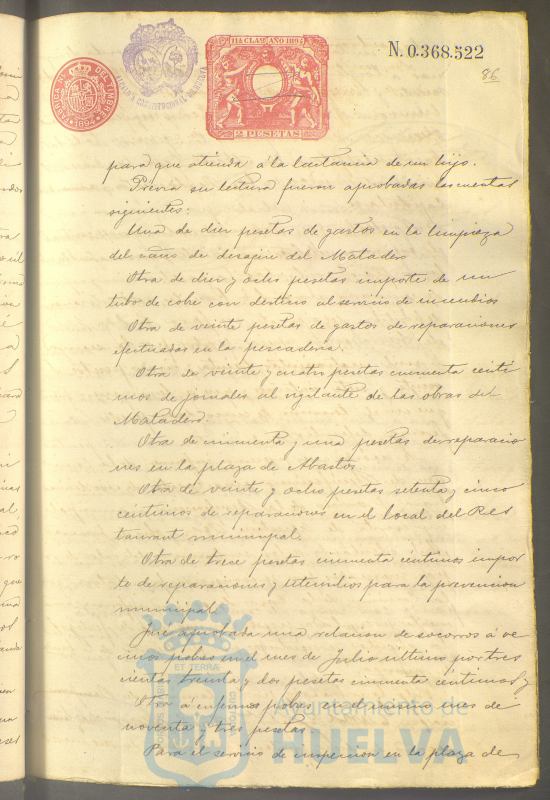 11ª CLASE AÑO 1894
2 PESETAS
FABRICA Nl. DEL TIMBRE
1894
N. 0.368.522
86
para que atienda á la lactancia de un hijo.
Prévia su lectura fueron aprobadas las cuentas
siguientes:
Una de diez pesetas de gastos en la limpieza
del caño de desagüe del Matadero
Otra de diez y ocho pesetas importe de un
tubo de cobre con destino al servicio de incendios
Otra de veinte pesetas de gastos de reparaciones
efectuadas en la pescaderia.
Otra de veinte y cuatro pesetas cincuenta centi
mos de jornales al vigilante de las obras del
Matadero.
Otra de cincuenta y una pesetas de reparacio
nes en la plaza de Abastos
Otra de veinte y ocho pesetas setenta y cinco
centimos de reparaciones en el local del Res
taurant municipal.
Otra de trece pesetas cincuenta céntimos impor
te de reparaciones y utensilios para la prevencion
municipal
Fué aprobada una relacion de socorros á ve
cinos pobres en el mes de Julio último por tres
cientas treinta y dos pesetas cincuenta centimos y
Otra á enfermos pobres en el mismo mes de
noventa y tres pesetas
Para el servicio de inspeccion en la plaza de
Ayuntamiento de
HUELVA